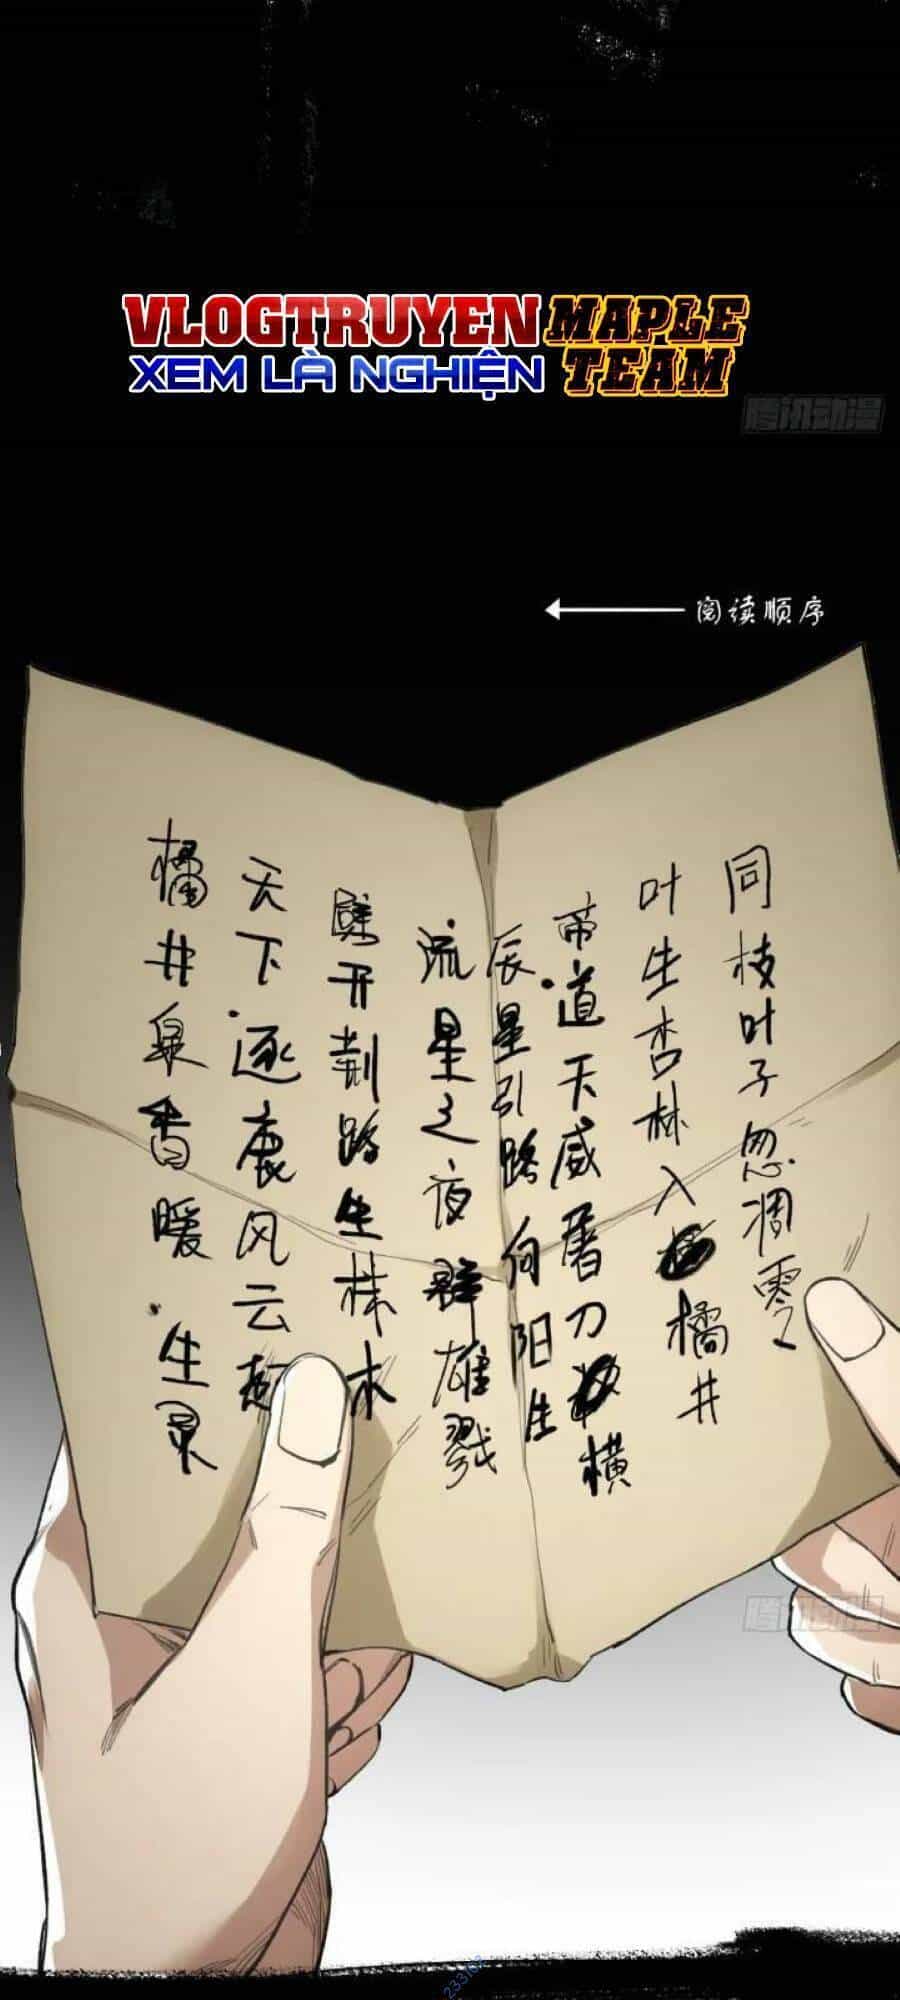 VLOGTRUYEN
XEM LÀ NGHIỆN
MAPLE
TEAM
腾讯动漫
阅读顺序
同枝叶子忽凋零
叶生杏林入橘井
帝道天威屠刀横
辰星引路向阳生
流星之夜群雄戮
劈开荆路生林木
天下逐鹿风云起
橘井泉香暖生灵
腾讯动漫
233102